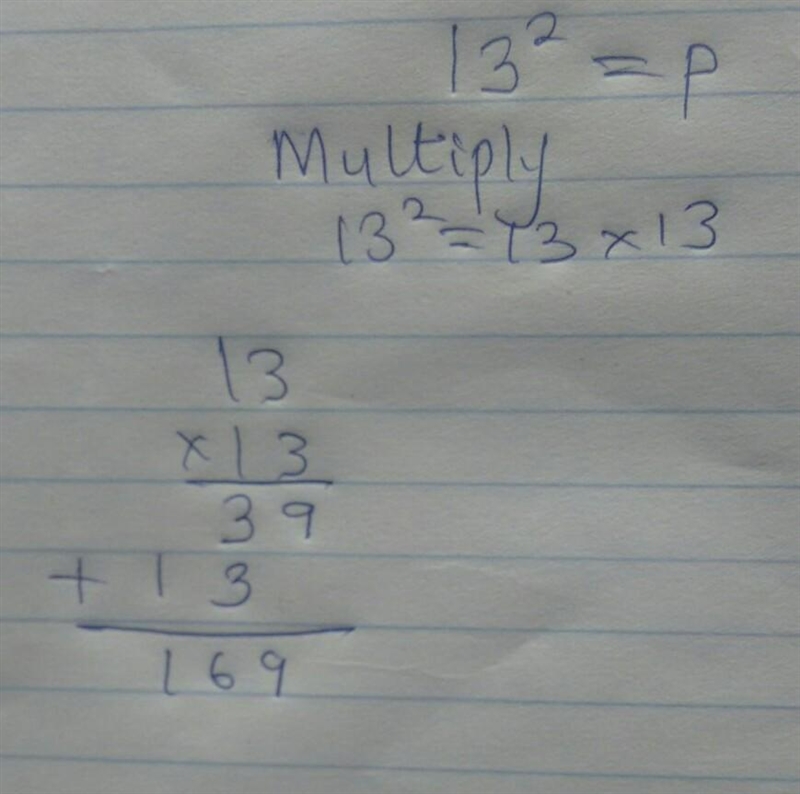 13² = p
Multiply
13² = 13 × 13
13
× 13
39
+ 13
169